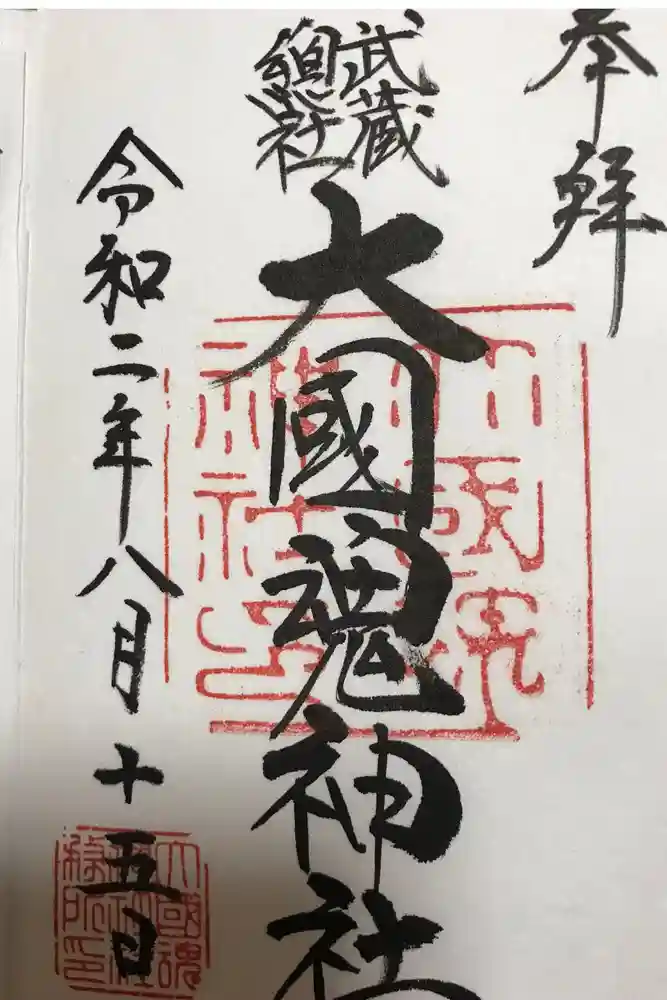 奉拝
武蔵
總社
大國魂神社
令和二年八月十五日